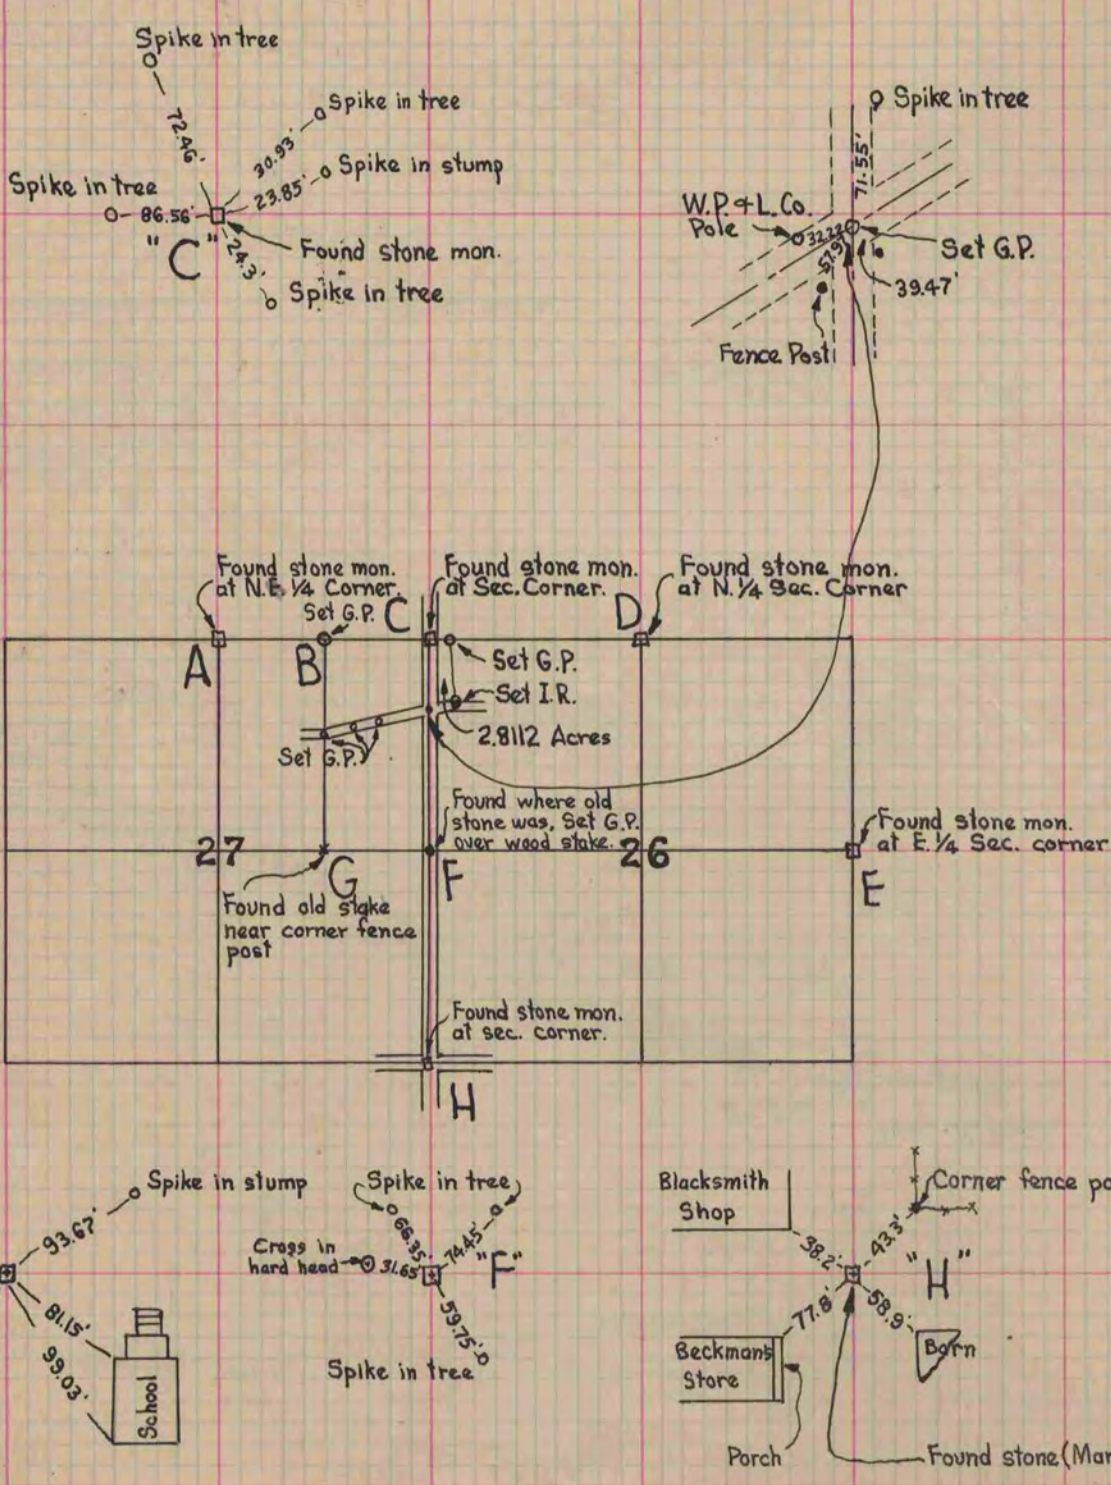 Spike in tree
72.46'
Spike in tree
30.93'
Spike in stump
23.85'
Spike in tree
86.56'
"C"
24.3'
Found stone mon.
Spike in tree
Spike in tree
71.55'
W.P. & L. Co.
Pole
Set G.P.
39.47'
Fence Post
Found stone mon.
at N.E. 1/4 Corner.
Set G.P.
Found stone mon.
at Sec. Corner.
Found stone mon.
at N. 1/4 Sec. Corner
A
B
C
D
Set G.P.
Set I.R.
2.8112 Acres
Set G.P.
Found where old
stone was, Set G.P.
over wood stake.
Found stone mon.
at E. 1/4 Sec. corner
27
26
G
F
E
Found old stake
near corner fence
post
Found stone mon.
at sec. corner.
H
Spike in stump
93.67'
81.15'
99.03'
School
Spike in tree
66.35'
74.45'
Cross in
hard head
31.65'
"F"
59.75'
Spike in tree
Blacksmith
Shop
Corner fence po
38.2'
43.3'
"H"
77.8'
58.9'
Beckman's
Store
Barn
Porch
Found stone (Mar